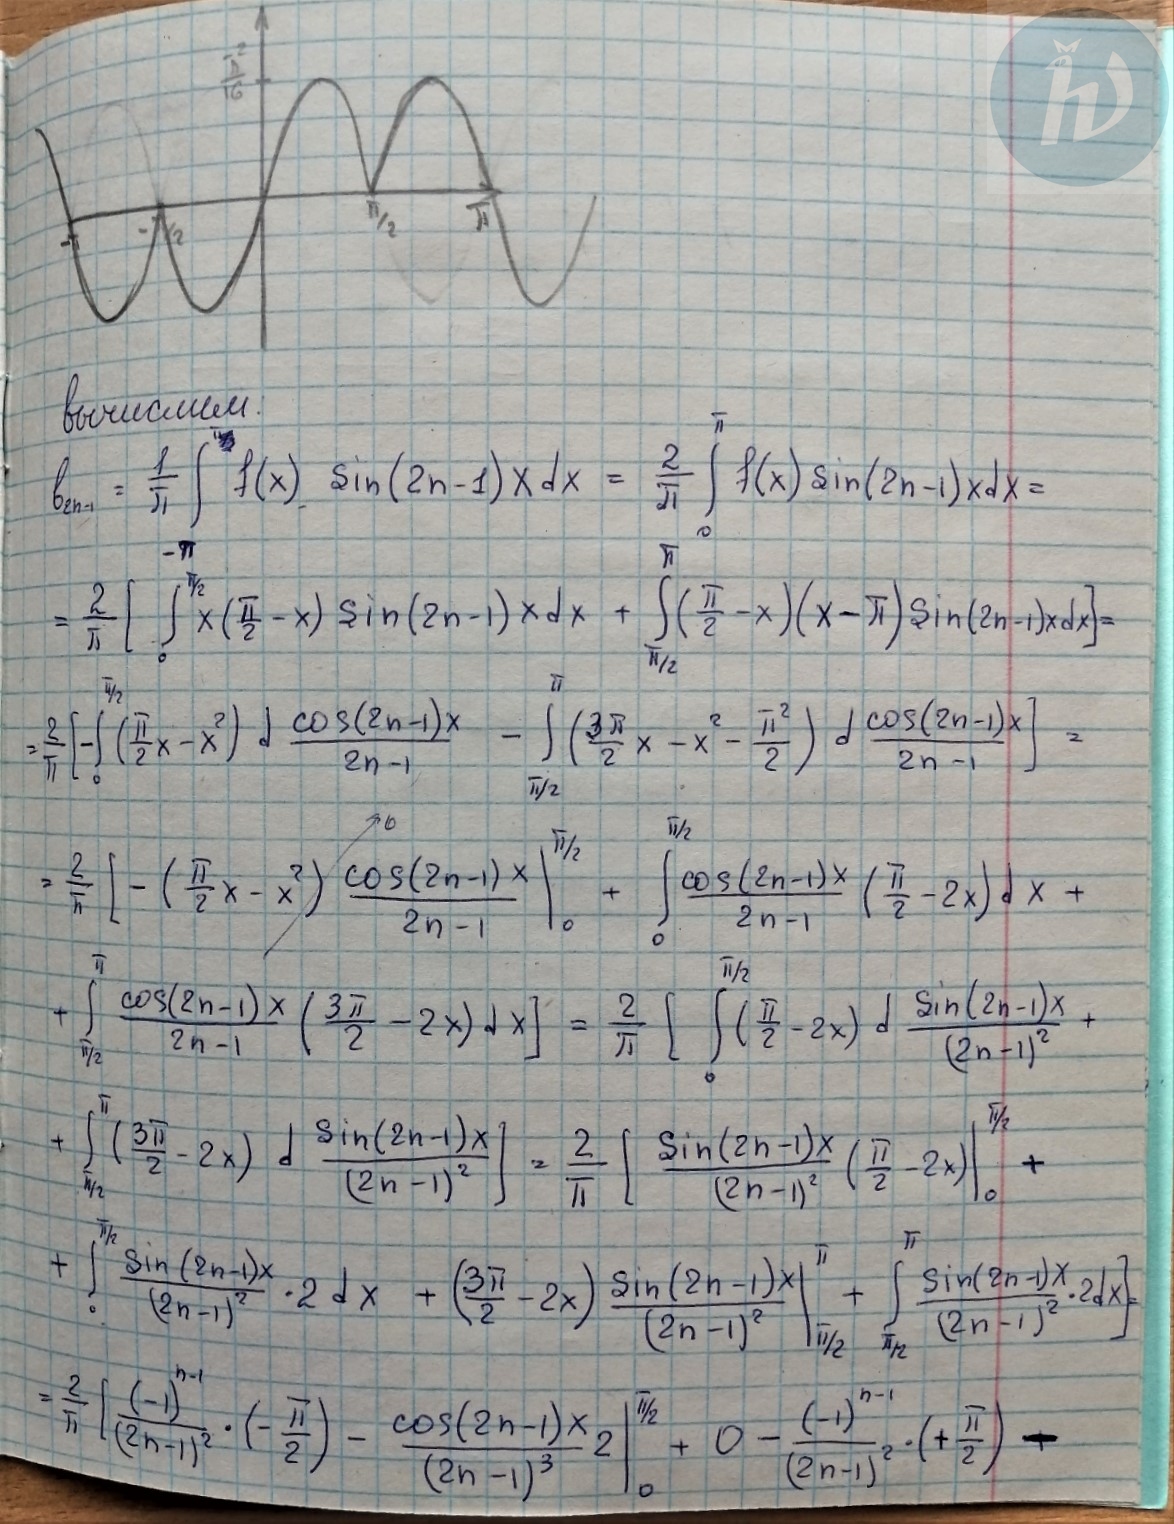 π²/16
-π -π/2 π/2 π
вычислим:
b_{2n-1} = 1/π ∫_{-π}^{π} f(x) sin(2n-1)x dx = 2/π ∫_0^π f(x) sin(2n-1)x dx =
= 2/π [ ∫_0^{π/2} x(π/2 - x) sin(2n-1)x dx + ∫_{π/2}^π (π/2 - x)(x - π) sin(2n-1)x dx ] =
= 2/π [ -∫_0^{π/2} (π/2 x - x²) d cos(2n-1)x/(2n-1) - ∫_{π/2}^π (3π/2 x - x² - π²/2) d cos(2n-1)x/(2n-1) ] =
= 2/π [ - (π/2 x - x²) cos(2n-1)x/(2n-1) |_0^{π/2} → 0 + ∫_0^{π/2} cos(2n-1)x/(2n-1) (π/2 - 2x) dx +
+ ∫_{π/2}^π cos(2n-1)x/(2n-1) (3π/2 - 2x) dx ] = 2/π [ ∫_0^{π/2} (π/2 - 2x) d sin(2n-1)x/(2n-1)² +
+ ∫_{π/2}^π (3π/2 - 2x) d sin(2n-1)x/(2n-1)² ] = 2/π [ sin(2n-1)x/(2n-1)² (π/2 - 2x) |_0^{π/2} +
+ ∫_0^{π/2} sin(2n-1)x/(2n-1)² · 2 dx + (3π/2 - 2x) sin(2n-1)x/(2n-1)² |_{π/2}^π + ∫_{π/2}^π sin(2n-1)x/(2n-1)² · 2dx ] =
= 2/π [ (-1)^{n-1}/(2n-1)² · (-π/2) - cos(2n-1)x/(2n-1)³ 2 |_0^{π/2} + 0 - (-1)^{n-1}/(2n-1)² · (+π/2) -